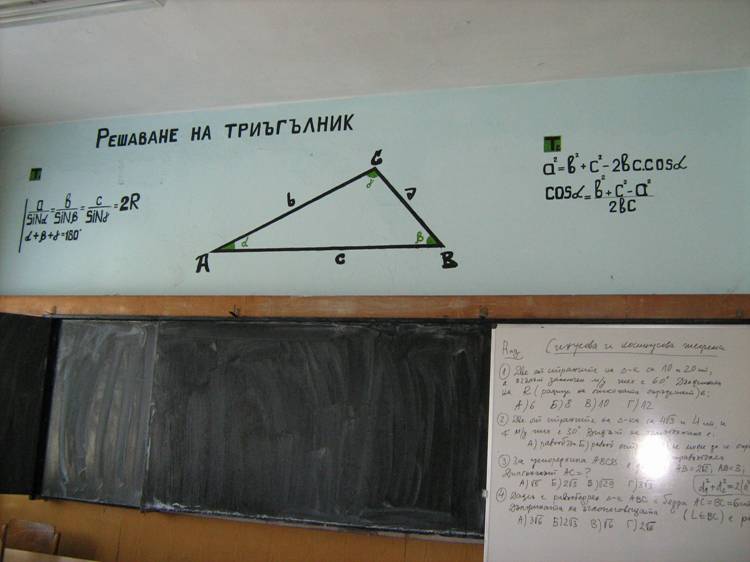 РЕШАВАНЕ НА ТРИЪГЪЛНИК
T
a/sinα = b/sinβ = c/sinγ = 2R
α+β+γ=180°
C
γ
b
a
α
β
A
c
B
Tc
a²=b²+c²-2bc.cosα
cosα=b²+c²-a²/2bc
Синусова и косинусова теорема
① Две от страните на Δ-к са 10 и 20 cm,
а ъгълът заключен м/у тях е 60°
на R (радиус на описаната окръжност) е:
А) 6 Б) 8 В) 10 Г) 12
② Две от страните на Δ-ка са 4√3 и 4 cm, а
м/у тях е 30°. Видът на триъгълника е:
А) Б)
③ За успоредника ABCD AB=2√2
Диагоналът AC=?
А) √5 Б) 2√3 В) √29 Г) 3√3
④ Даден е равнобедрен Δ-к ABC с бедра AC=BC=6
Дължината на ъглополовящата (L∈BC) е
А) 3√6 Б) 2√3 В) √6 Г) 2√6